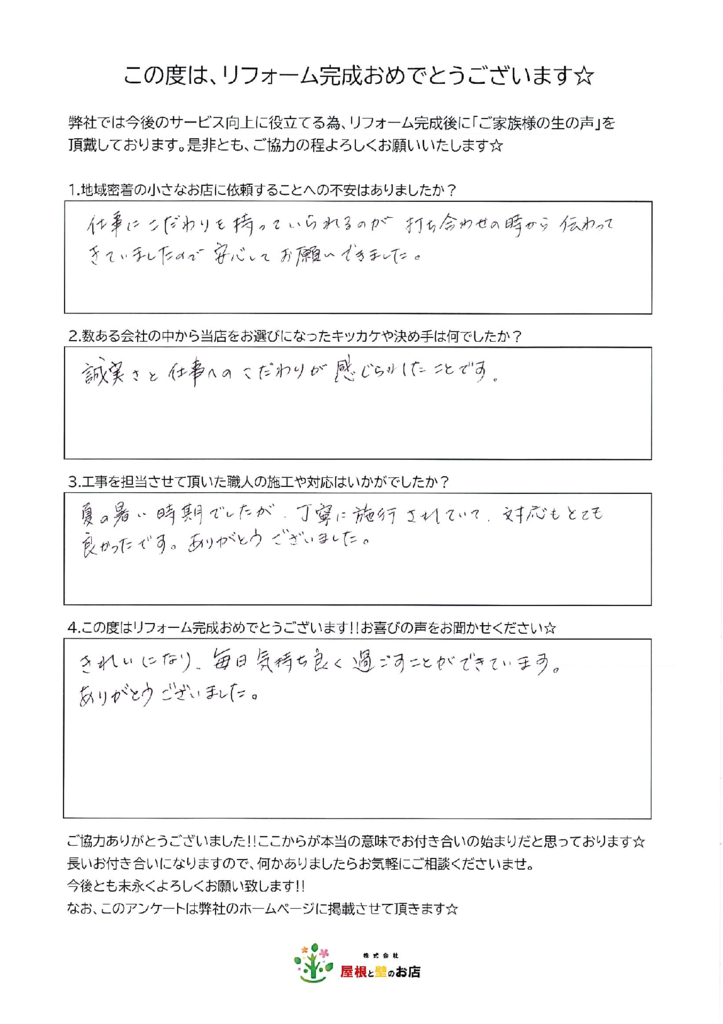 この度は、リフォーム完成おめでとうございます☆
弊社では今後のサービス向上に役立てる為、リフォーム完成後に「ご家族様の生の声」を
頂戴しております。是非とも、ご協力の程よろしくお願いいたします☆
1.地域密着の小さなお店に依頼することへの不安はありましたか？
仕事にこだわりを持っていられるのが 打ち合わせの時から 伝わって
きていましたので 安心して お願いできました。
2.数ある会社の中から当店をお選びになったキッカケや決め手は何でしたか？
誠実さと 仕事への こだわりが 感じられたことです。
3.工事を担当させて頂いた職人の施工や対応はいかがでしたか？
夏の暑い時期でしたが、丁寧に施行されていて、対応もとても
良かったです。ありがとうございました。
4.この度はリフォーム完成おめでとうございます!!お喜びの声をお聞かせください☆
きれいになり、毎日気持ち良く過ごすことができています。
ありがとうございました。
ご協力ありがとうございました!!ここからが本当の意味でお付き合いの始まりだと思っております☆
長いお付き合いになりますので、何かありましたらお気軽にご相談くださいませ。
今後とも末永くよろしくお願い致します!!
なお、このアンケートは弊社のホームページに掲載させて頂きます☆
株式会社
屋根と壁のお店